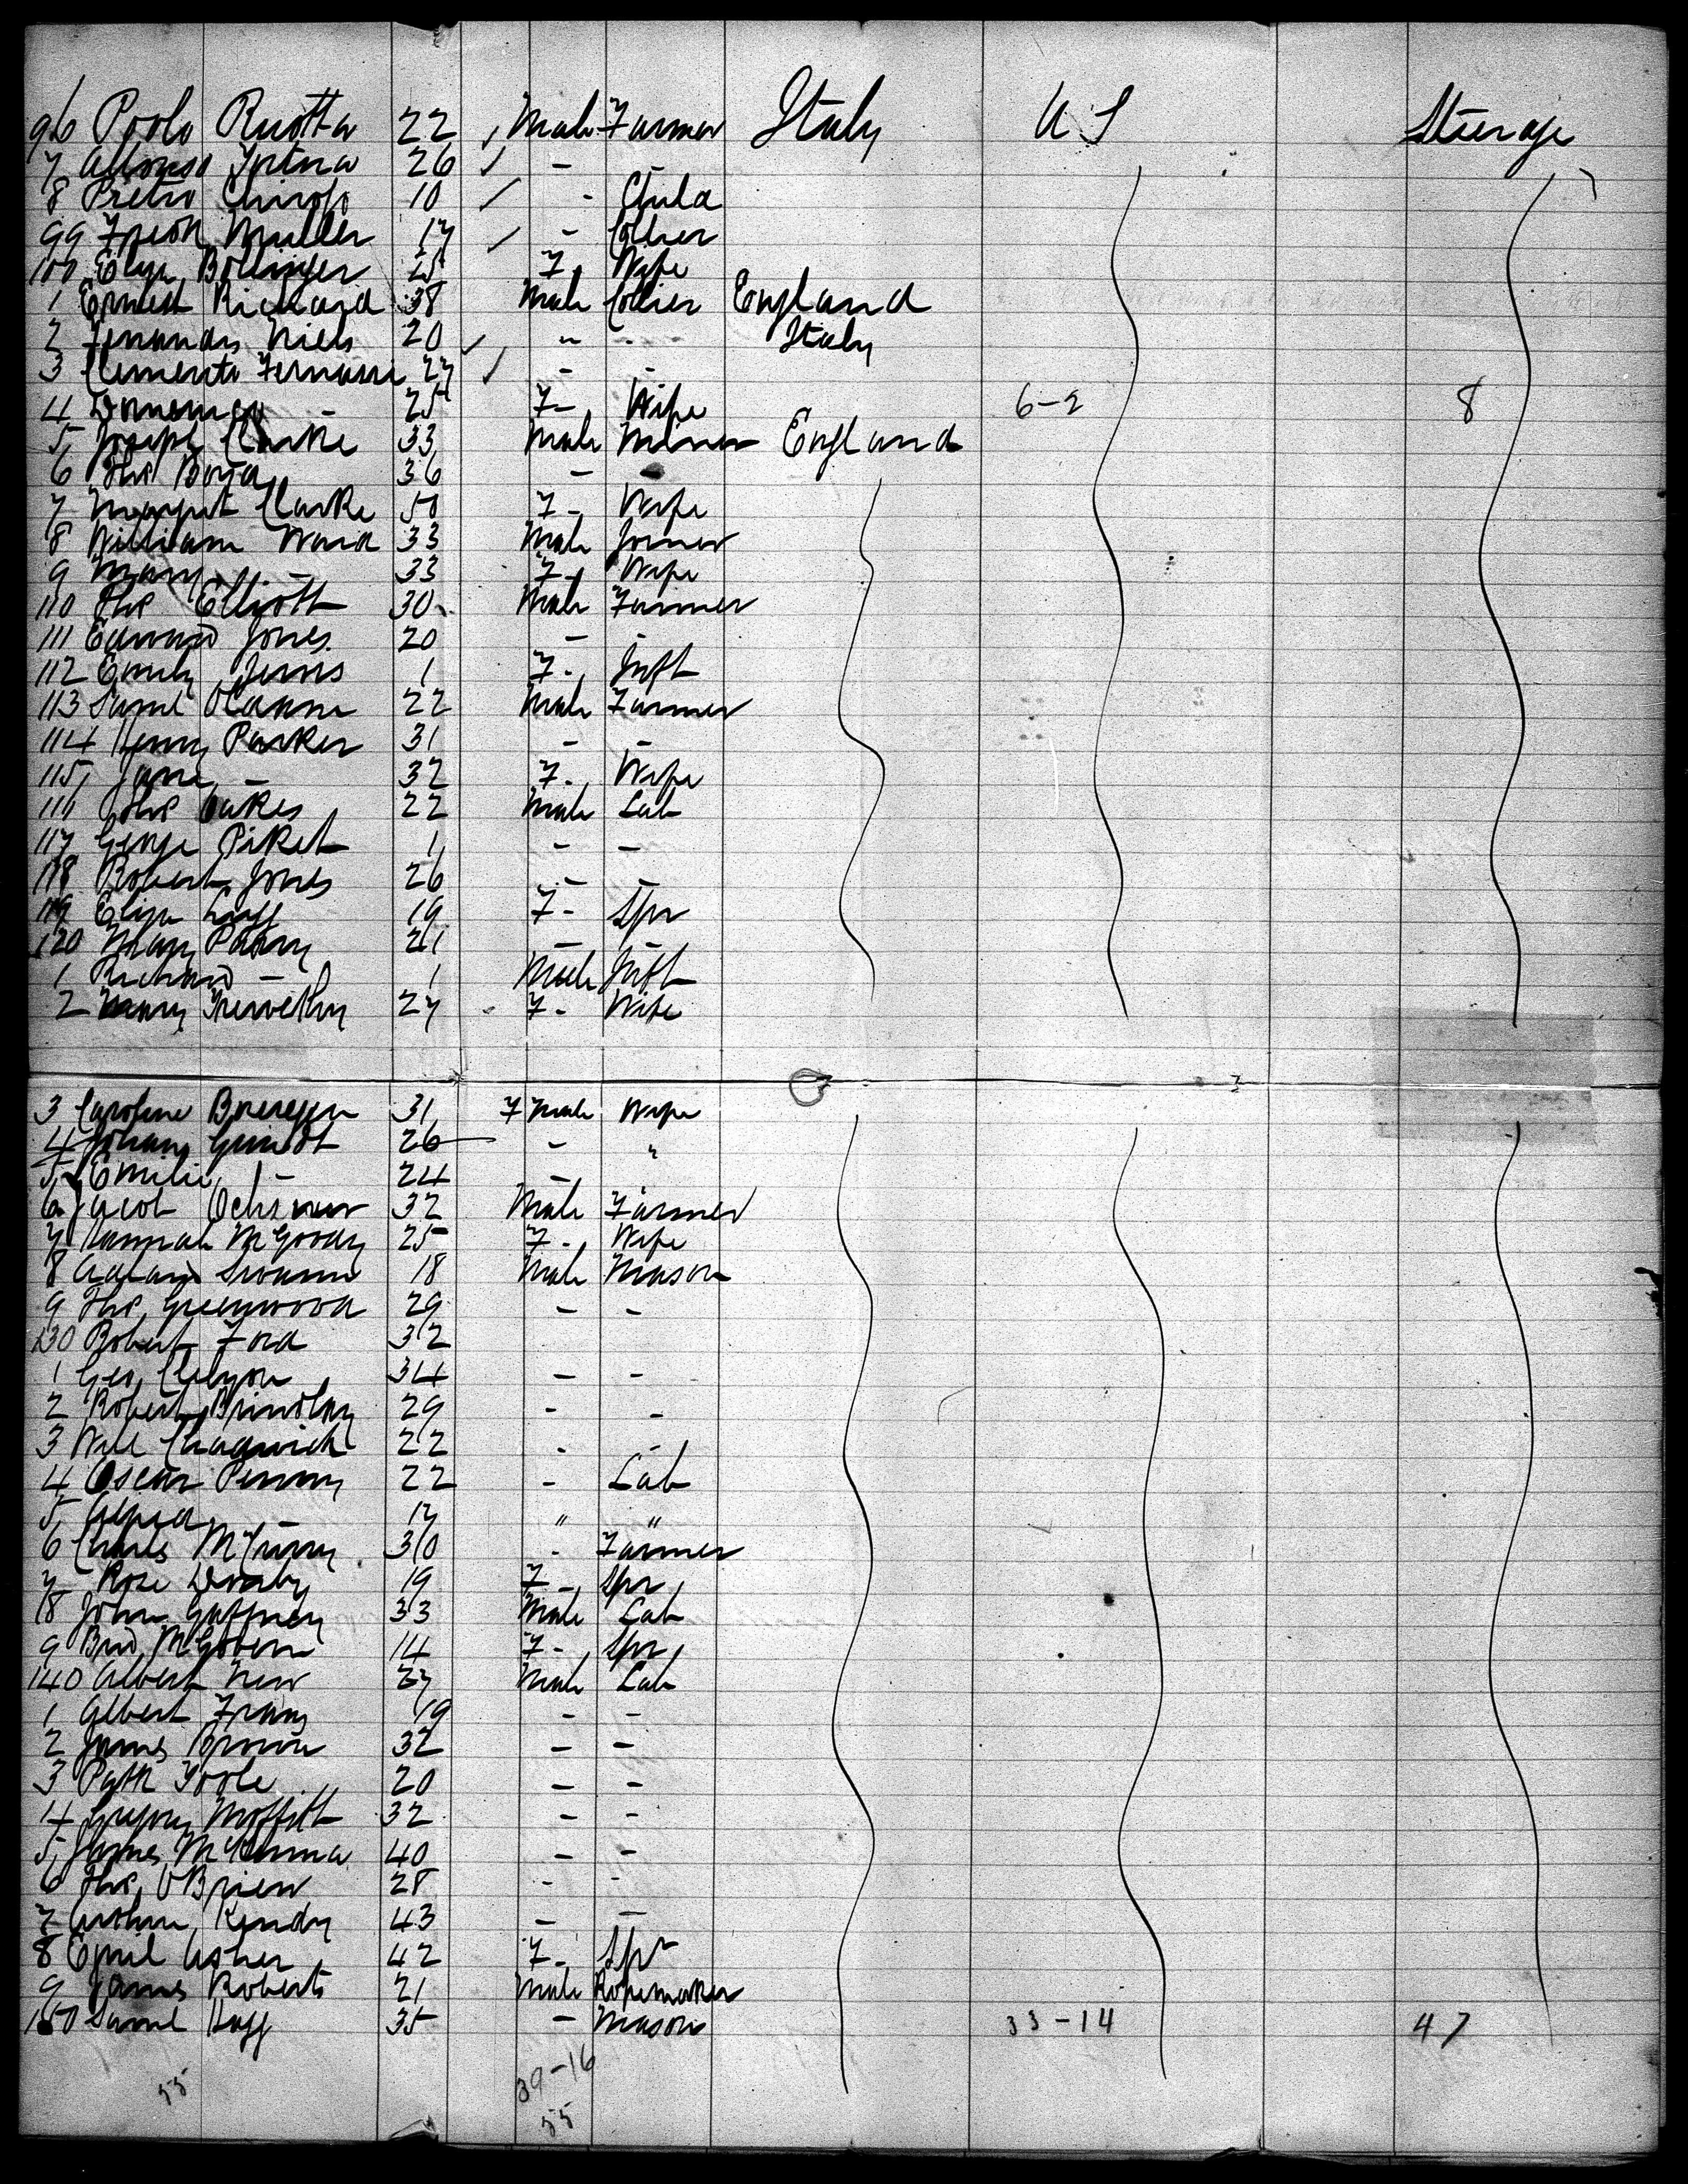 96 Paolo Ruotta 22 Male Farmer Italy U S Steerage
7 Alfonso 26 - -
8 Pietro 10 - Child
99 Muller 17 - Collier
100 Eliza Bollinger 25 F Wife
1 Ernest Richard 38 Male Collier England
2 20 " - Italy
3 Clemente 27 - -
4 - 25 F - Wife 6-2 8
5 Joseph Clarke 33 Male Miner England
6 Thos Boyd 36 - -
7 Margret Clarke 50 F - Wife
8 William Ward 33 Male Joiner
9 Mary - 33 F - Wife
110 Thos Elliott 30 Male Farmer
111 Edward Jones 20 - -
112 Emily Jones 1 F - Inft
113 Saml 22 Male Farmer
114 Henry Parker 31 - -
115 Jane - 32 F - Wife
116 Thos Oakes 22 Male Lab
117 George Piket 1 - -
118 Robert Jones 26 - -
119 Eliza 19 F - Spr
120 Mary Parry 21 - -
1 Richard - 1 Male Inft
2 Mary 27 F - Wife
3 Caroline 31 F Male Wife
4 Johann 26 - "
5 Emilie - 24 -
6 Jacob 32 Male Farmer
7 Hannah McGoody 25 F - Wife
8 18 Male Mason
9 Thos Greenwood 29 - -
130 Robert Ford 32
1 Geo 34 - -
2 Robert Brindley 29 - -
3 Will Chadwick 22 - -
4 Oscar Penny 22 - Lab
5 Alfred - 17 " "
6 Charles 30 - Farmer
7 Rose 19 F - Spr
8 John Gaffney 33 Male Lab
9 Brid McGovern 14 F - Spr
140 Albert New 27 Male Lab
1 Albert Franz 19 - -
2 James Brown 32 - -
3 Patk Toole 20 - -
4 Gregory Moffitt 32 - -
5 James McKenna 40 - -
6 Thos OBrien 28 - -
7 43 - -
8 Asher 42 F - Spr
9 James Roberts 21 Male Ropemaker
150 Saml 35 - Mason 33-14 47
39-16
55 55